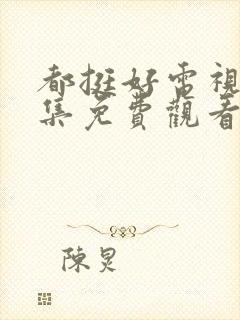 都挺好電視
集免費觀看
陳炅